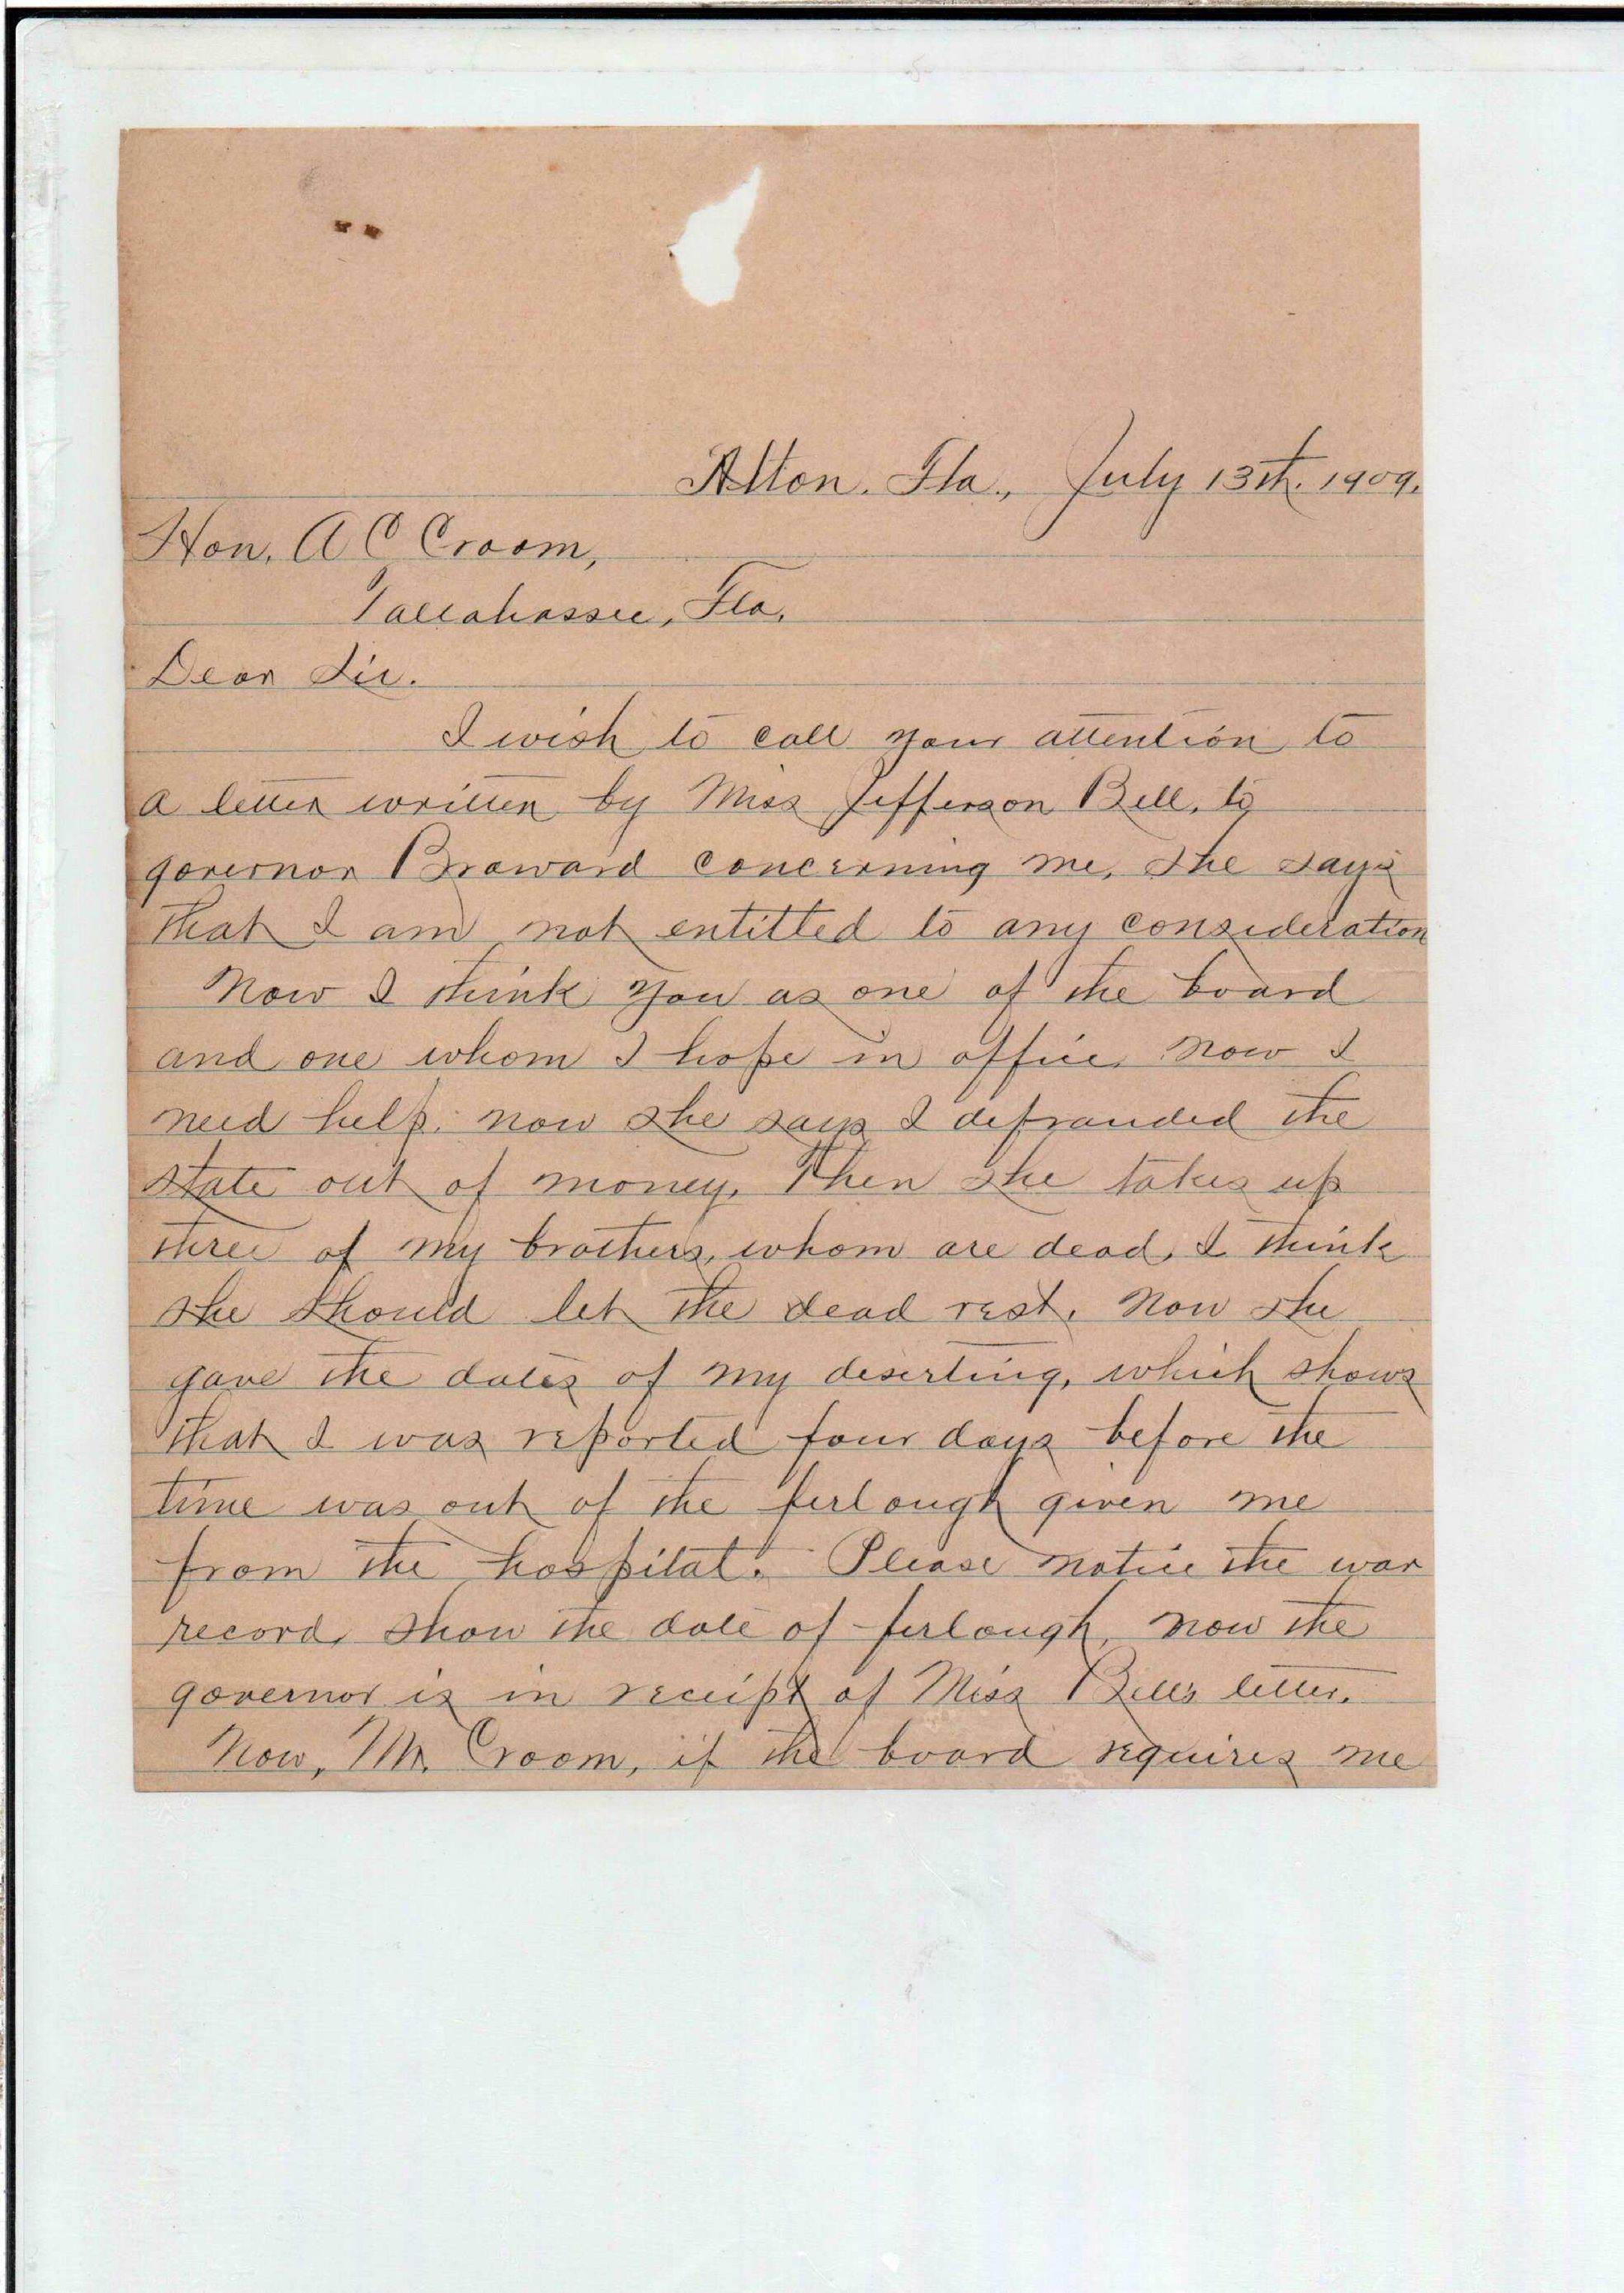 Alton. Fla., July 13th. 1909.
Hon. A C Croom,
Tallahassee, Fla.
Dear Sir.
I wish to call your attention to
a letter written by Miss Jefferson Bell, to
governor Broward concerning me, she says
that I am not entitled to any consideration
Now I think you as one of the board
and one whom I hope in office, Now I
need help. now she says I defrauded the
state out of money. Then she takes up
three of my brothers, whom are dead, I think
she should let the dead rest. Now she
gave the dates of my deserting, which shows
that I was reported four days before the
time was out of the ferlough given me
from the hospital. Please notice the war
record, show the date of ferlough, now the
governor is in receipt of Miss Bells letter.
Now, Mr. Croom, if the board requires me